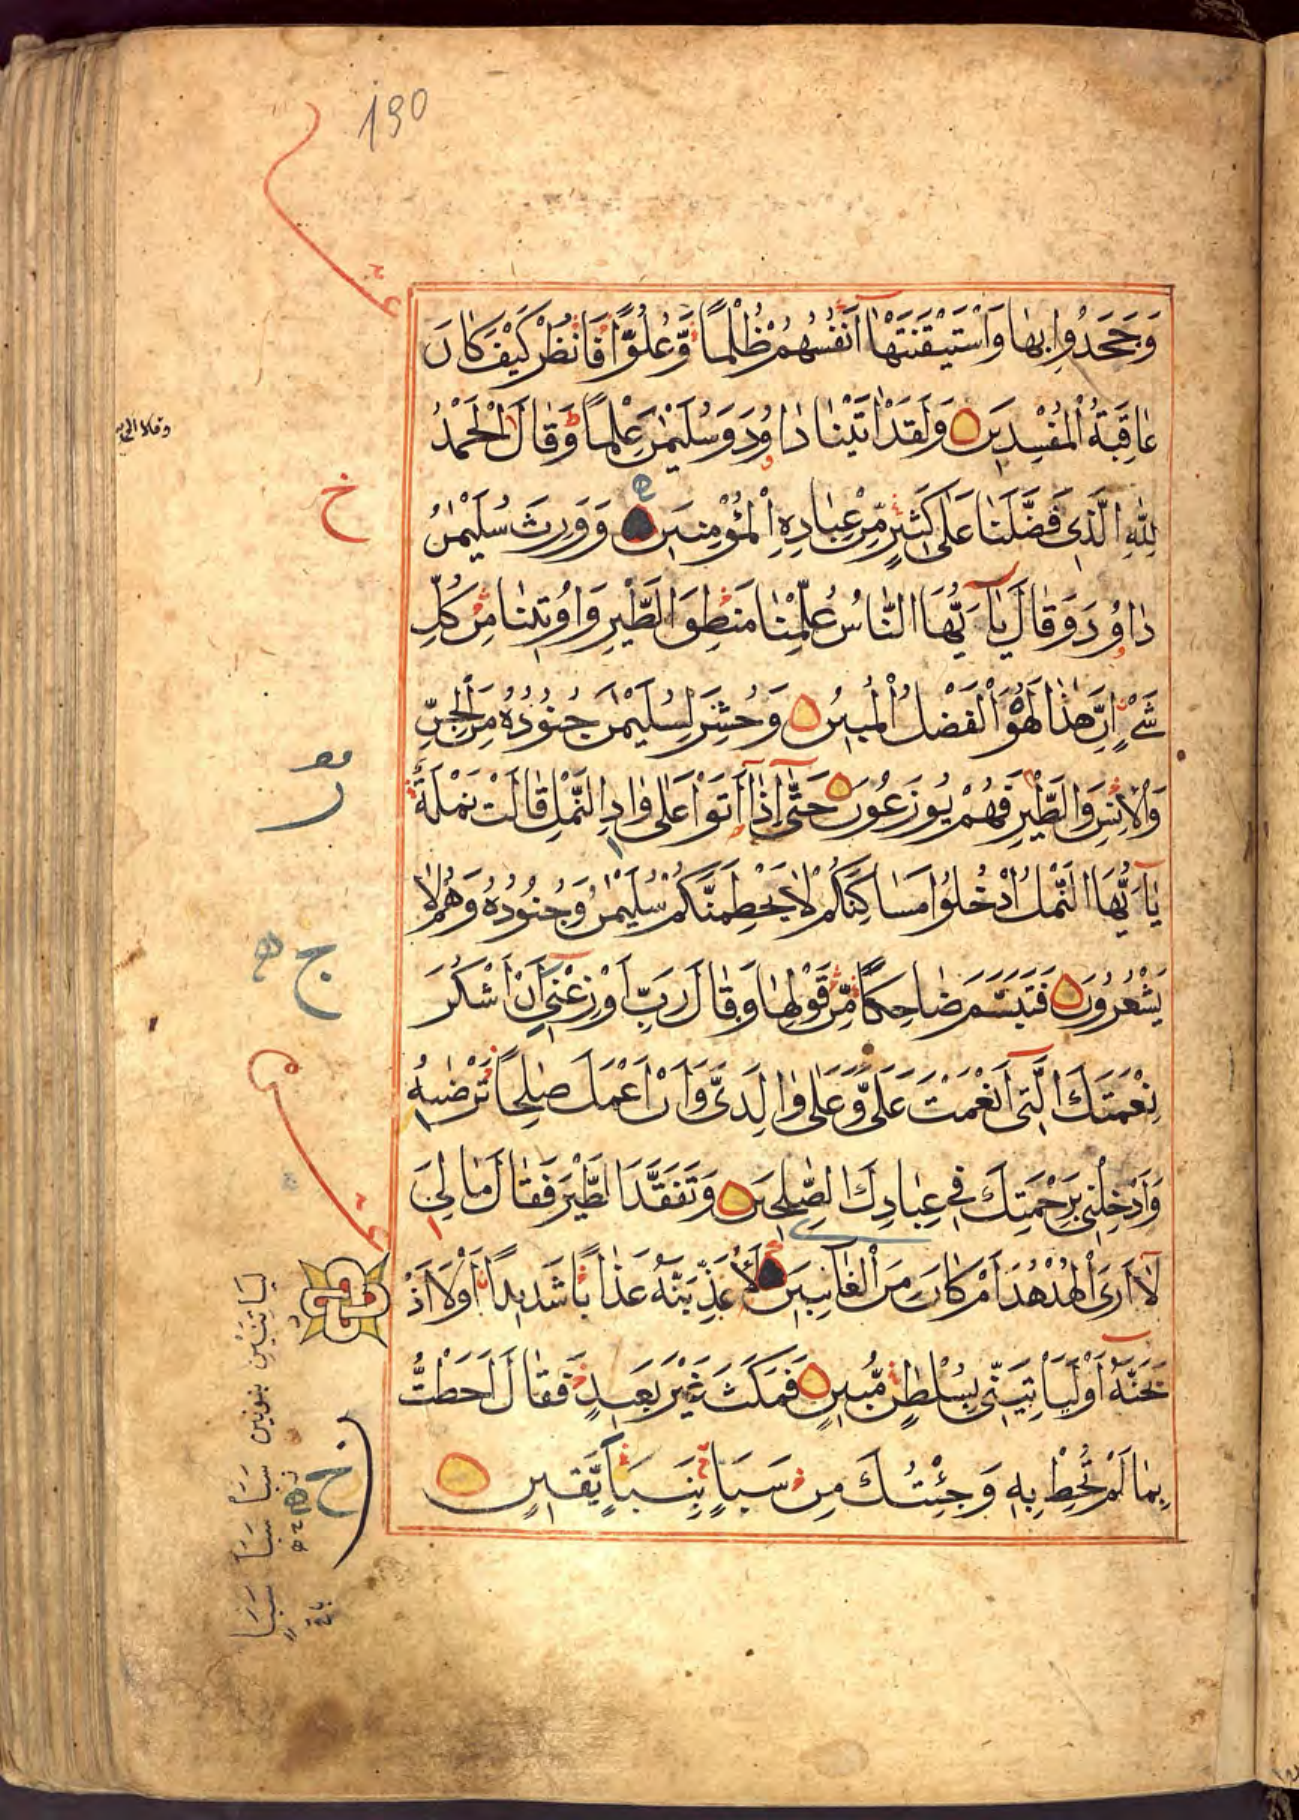 190
وَجَحَدُوا بِهَا وَاسْتَيْقَنَتْهَا أَنْفُسُهُمْ ظُلْمًا وَّعُلُوًّا فَانْظُرْ كَيْفَ كَانَ
عَاقِبَةُ الْمُفْسِدِينَ وَلَقَدْ اتَيْنَا دَاوُدَ وَسُلَيْمٰنَ عِلْمًا وَّقَالَا الْحَمْدُ
وقالا الحمد
لِلّٰهِ الَّذِى فَضَّلَنَا عَلٰى كَثِيرٍ مِّنْ عِبَادِهِ الْمُؤْمِنِينَ وَوَرِثَ سُلَيْمٰنُ
خ
دَاوُدَ وَقَالَ يَآ اَيُّهَا النَّاسُ عُلِّمْنَا مَنْطِقَ الطَّيْرِ وَاُوتِينَا مِنْ كُلِّ
شَىْءٍ اِنَّ هٰذَا لَهُوَ الْفَضْلُ الْمُبِينُ وَحُشِرَ لِسُلَيْمٰنَ جُنُودُهُ مِنَ الْجِنِّ
وَالْاِنْسِ وَالطَّيْرِ فَهُمْ يُوزَعُونَ حَتّٰى اِذَا اَتَوْا عَلٰى وَادِ النَّمْلِ قَالَتْ نَمْلَةٌ
يَآ اَيُّهَا النَّمْلُ ادْخُلُوا مَسَاكِنَكُمْ لَا يَحْطِمَنَّكُمْ سُلَيْمٰنُ وَجُنُودُهُ وَهُمْ لَا
يَشْعُرُونَ فَتَبَسَّمَ ضَاحِكًا مِّنْ قَوْلِهَا وَقَالَ رَبِّ اَوْزِعْنِى اَنْ اَشْكُرَ
ج
نِعْمَتَكَ الَّتِى اَنْعَمْتَ عَلَىَّ وَعَلٰى وَالِدَىَّ وَاَنْ اَعْمَلَ صَالِحًا تَرْضٰيهُ
وَاَدْخِلْنِى بِرَحْمَتِكَ فِى عِبَادِكَ الصّٰلِحِينَ وَتَفَقَّدَ الطَّيْرَ فَقَالَ مَا لِىَ
لَآ اَرَى الْهُدْهُدَ اَمْ كَانَ مِنَ الْغَائِبِينَ لَاُعَذِّبَنَّهُ عَذَابًا شَدِيدًا اَوْ لَاَ اذْ
بَحَنَّهُ اَوْ لَيَاْتِيَنِّى بِسُلْطٰنٍ مُّبِينٍ فَمَكَثَ غَيْرَ بَعِيدٍ فَقَالَ اَحَطْتُ
بِمَا لَمْ تُحِطْ بِهِ وَجِئْتُكَ مِنْ سَبَاٍ بِنَبَاٍ يَّقِينٍ
خ
ليأتينني بنونين سبا سبا سبا